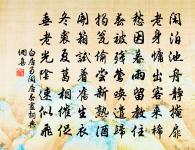 閑泊池舟靜掩扉
老身慵出客來稀
愁因暮雨留教住
春被殘鶯喚遣歸
揭瓮偷嘗新熟酒
開箱試著舊生衣
冬裘夏葛相催促
垂老光陰速似飛
白居易閑居春盡詞典
網